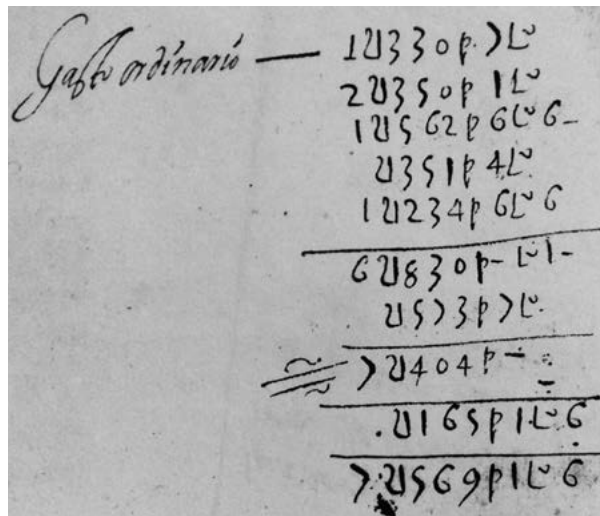 Gasto ordinario — 1U330p 7Lº
2U350p 1Lº
1U562p 6Lº 6-
U351p 4Lº
1U234p 6Lº 6
6U830p- Lº 1-
U573p 7Lº
7U404p -
.U165p 1Lº 6
7U569p 1Lº 6